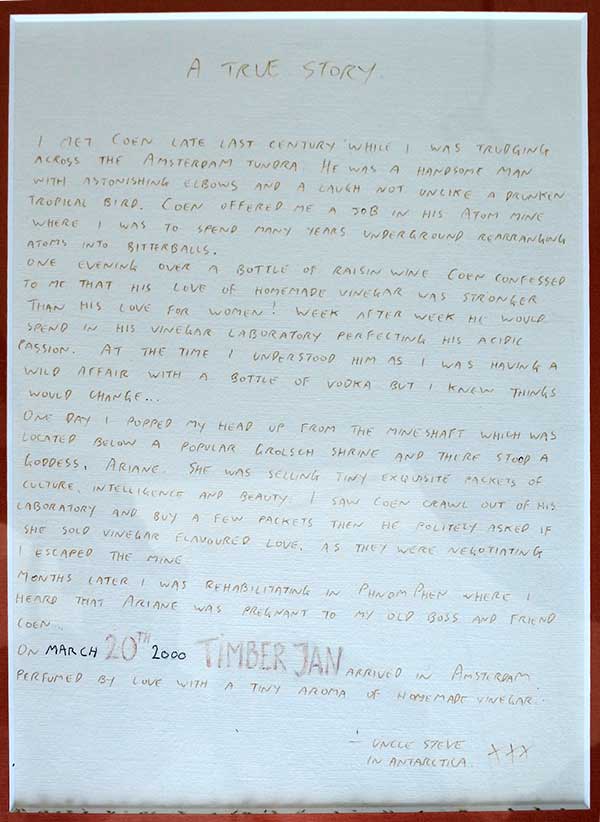 A TRUE STORY.
I MET COEN LATE LAST CENTURY WHILE I WAS TRUDGING
ACROSS THE AMSTERDAM TUNDRA. HE WAS A HANDSOME MAN
WITH ASTONISHING ELBOWS AND A LAUGH NOT UNLIKE A DRUNKEN
TROPICAL BIRD. COEN OFFERED ME A JOB IN HIS ATOM MINE
WHERE I WAS TO SPEND MANY YEARS UNDERGROUND REARRANGING
ATOMS INTO BITTERBALLS.
ONE EVENING OVER A BOTTLE OF RAISIN WINE COEN CONFESSED
TO ME THAT HIS LOVE OF HOMEMADE VINEGAR WAS STRONGER
THAN HIS LOVE FOR WOMEN! WEEK AFTER WEEK HE WOULD
SPEND IN HIS VINEGAR LABORATORY PERFECTING HIS ACIDIC
PASSION. AT THE TIME I UNDERSTOOD HIM AS I WAS HAVING A
WILD AFFAIR WITH A BOTTLE OF VODKA BUT I KNEW THINGS
WOULD CHANGE...
ONE DAY I POPPED MY HEAD UP FROM THE MINESHAFT WHICH WAS
LOCATED BELOW A POPULAR GROLSCH SHRINE AND THERE STOOD A
GODDESS, ARIANE. SHE WAS SELLING TINY EXQUISITE PACKETS OF
CULTURE, INTELLIGENCE AND BEAUTY. I SAW COEN CRAWL OUT OF HIS
LABORATORY AND BUY A FEW PACKETS THEN HE POLITELY ASKED IF
SHE SOLD VINEGAR FLAVOURED LOVE. AS THEY WERE NEGOTIATING
I ESCAPED THE MINE.
MONTHS LATER I WAS REHABILITATING IN PHNOM PHEN WHERE I
HEARD THAT ARIANE WAS PREGNANT TO MY OLD BOSS AND FRIEND
COEN...
ON MARCH 20TH 2000 TIMBER JAN ARRIVED IN AMSTERDAM.
PERFUMED BY LOVE WITH A TINY AROMA OF HOMEMADE VINEGAR...
- UNCLE STEVE XXX
IN ANTARCTICA.